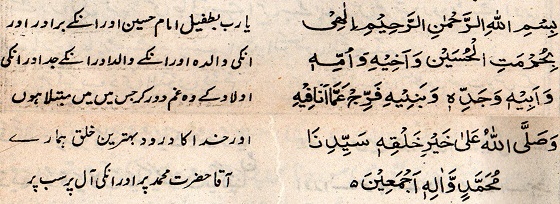 بِسْمِ اللهِ الرَّحْمٰنِ الرَّحِيْمِ اِلٰهِيْ
بِحُرْمَتِ الْحُسَيْنِ وَاَخِيْهِ وَاُمِّهٖ
وَاَبِيْهِ وَجَدِّهٖ وَبَنِيْهِ فَرِّجْ عَمَّا اَنَا فِيْهِ
وَصَلَّى اللهُ عَلٰى خَيْرِ خَلْقِهٖ سَيِّدِنَا
مُحَمَّدٍ وَّاٰلِهٖ اَجْمَعِيْنَ ۵
یا رب بطفیل امام حسین اور انکے برادر اور
انکی والدہ اور انکے والد اور انکے جد اور انکی
اولاد کے وہ غم دور کر جس میں میں مبتلا ہوں
اور خدا کا درود بہترین خلق ہمارے
آقا حضرت محمد پر اور انکی آل پر سب پر